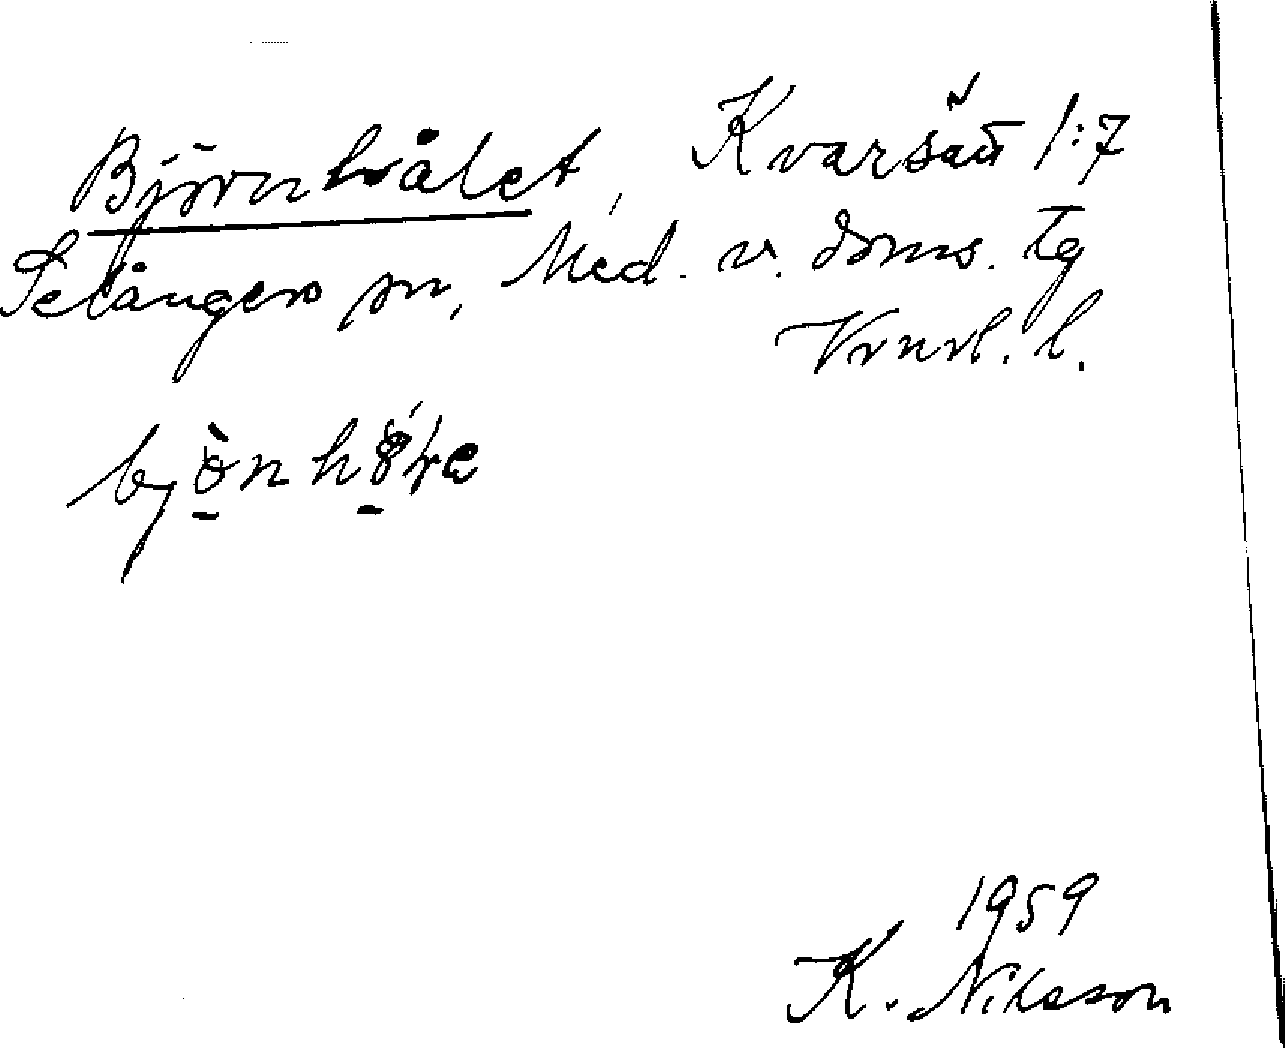 Björnhålet, Kvarsätt 1:7
Selångers sn, Med. v. doms. tg
Vrnrl. l.
bjò̱n hó̱ɽe
1959
K. Nilsson